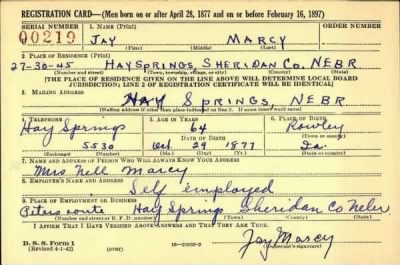 REGISTRATION CARD—(Men born on or after April 28, 1877 and on or before February 16, 1897)
SERIAL NUMBER 1. NAME (Print)
00219 JAY MARCY
(First) (Middle) (Last)
2. PLACE OF RESIDENCE (Print)
27-30-45 HAY SPRINGS, SHERIDAN CO. NEBR
(Number and street) (Town, township, village, or city) (County) (State)
[THE PLACE OF RESIDENCE GIVEN ON THE LINE ABOVE WILL DETERMINE LOCAL BOARD
JURISDICTION; LINE 2 OF REGISTRATION CERTIFICATE WILL BE IDENTICAL]
3. MAILING ADDRESS
HAY SPRINGS, NEBR
[Mailing address if other than place indicated on line 2. If same insert word same]
4. TELEPHONE 5. AGE IN YEARS 6. PLACE OF BIRTH
Hay Springs 64 Rowley
DATE OF BIRTH (Town or county)
5530 Oct. 29 1877 Ia.
(Exchange) (Number) (Mo.) (Day) (Yr.) (State or country)
7. NAME AND ADDRESS OF PERSON WHO WILL ALWAYS KNOW YOUR ADDRESS
Mrs Nell Marcy
8. EMPLOYER'S NAME AND ADDRESS
Self employed
9. PLACE OF EMPLOYMENT OR BUSINESS
Peters route Hay Springs Sheridan Co Nebr
(Number and street or R. F. D. number) (Town) (County) (State)
I AFFIRM THAT I HAVE VERIFIED ABOVE ANSWERS AND THAT THEY ARE TRUE.
D. S. S. Form 1
(Revised 4-1-42) (over) Jay Marcy
(Registrant's signature)